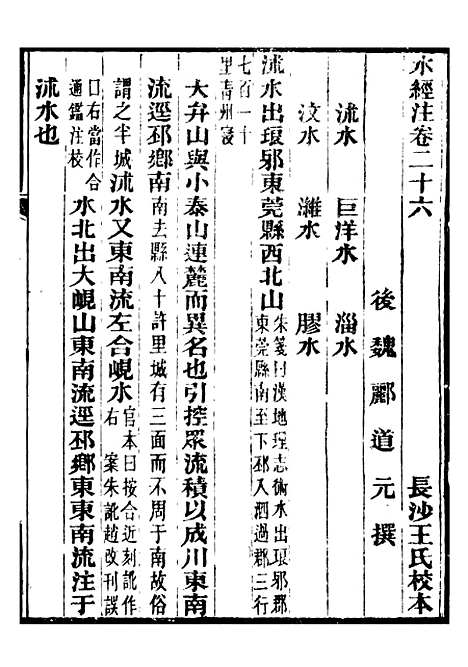 水經注卷二十六　長沙王氏校本
後魏酈道元撰
沭水　巨洋水　淄水
汶水　濰水　膠水
沭水出琅邪東莞縣西北山朱箋曰漢地理志術水出琅邪郡東莞縣南至下邳入泗過郡三行
七百一十里靑州寖
大弁山與小泰山連麓而異名也引控眾流積以成川東南
流逕邳鄉南南去縣八十許里城有三面而不周于南故俗
謂之半城沭水又東南流左合峴水官本曰按合近刻訛作右　案朱訛趙改刊誤
曰右當作合通鑑注校水北出大峴山東南流逕邳鄉東東南流注于
沭水也